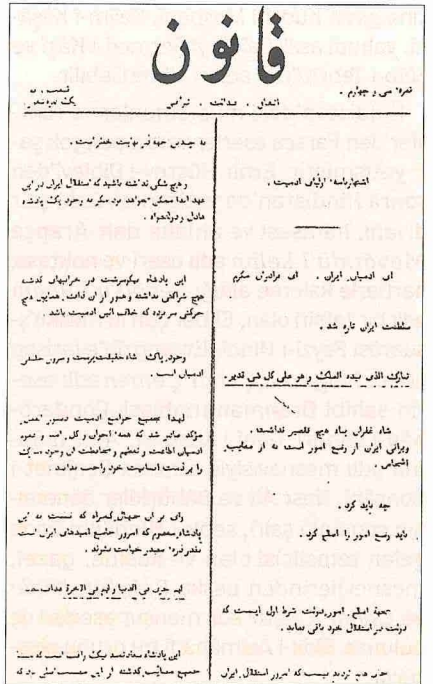 قانون
نمره سی و چهارم .
اتفاق . عدالت . ترقی
قیمت
اشتهارنامهٔ اولیای آدمیت .
ای آدمیان ایران . ای برادران مکرم
سلطنت ایران تازه شد .
تبارک الذی بیده الملک و هو علی کل شی قدیر .
شاه غفران پناه هیچ تقصیر نداشت .
ویرانی ایران از وضع امور است نه از معایب
اشخاص .
چه باید کرد .
باید وضع امور را اصلاح کرد .
بجهة اصلاح امور دولت شرط اول اینست که
دولت در استقلال خود باقی بماند .
جای هیچ تردید نیست که امروز استقلال ایران
به چندین جهة
و هیچ شکی نداشته باشید که استقلال ایران در این
عهد ابدا ممکن نخواهد بود مگر به وجود یک پادشاه
عادل و دولتخواه .
این پادشاه نیکوسرشت در خرابیهای گذشته
هیچ شراکتی نداشته و هنوز از آن ذات همایون هیچ
حرکتی سر نزده که خلاف آئین آدمیت باشد
وجود پاک شاه حقیقت پرست و سرور حقیقی
آدمیان است .
لهذا بجمیع جوامع آدمیت دستور العمل
مؤکد صادر شد که همه اخوان و کل امنا و عموم
آدمیان اطاعت و تعظیم و محافظت آن وجود مبارک
را بر ذمت انسانیت خود واجب بدانند .
حیوان گمراه که نسبت به این
پادشاه معصوم که امروز جامع امیدهای ایران است
بقدر ذره
لهم خزی فی الدنیا و لهم فی الاخرة عذاب
این پادشاه سعادتمند
جمیع معایب گذشته از این